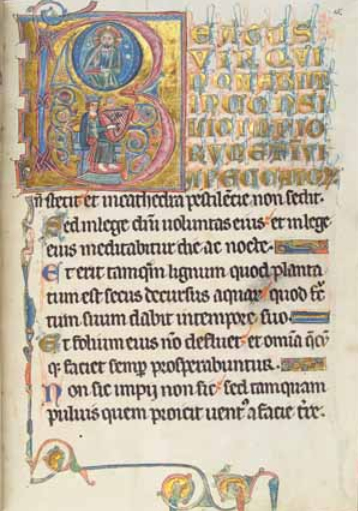 BEATUS
VIR QVI
NON ABIIT
IN CONSI
LIO INPIO
RVM ET I VI
A PECCATOR
n̄ stetit et in cathedra pestilētie non sedit.
Sed in lege dn̄i uoluntas eius et in lege
eius meditabitur die ac nocte.
Et erit tamqm̄ lignum quod planta
tum est secus decursus aquaꝝ quod fc̄
tum suum dabit in tempore suo.
Et folium eius nō defluet et omīa
q; faciet semꝑ prosperabuntur.
Non sic impij non sic sed tamquam
puluis quem proicit uentꝰ a facie tr̄e.